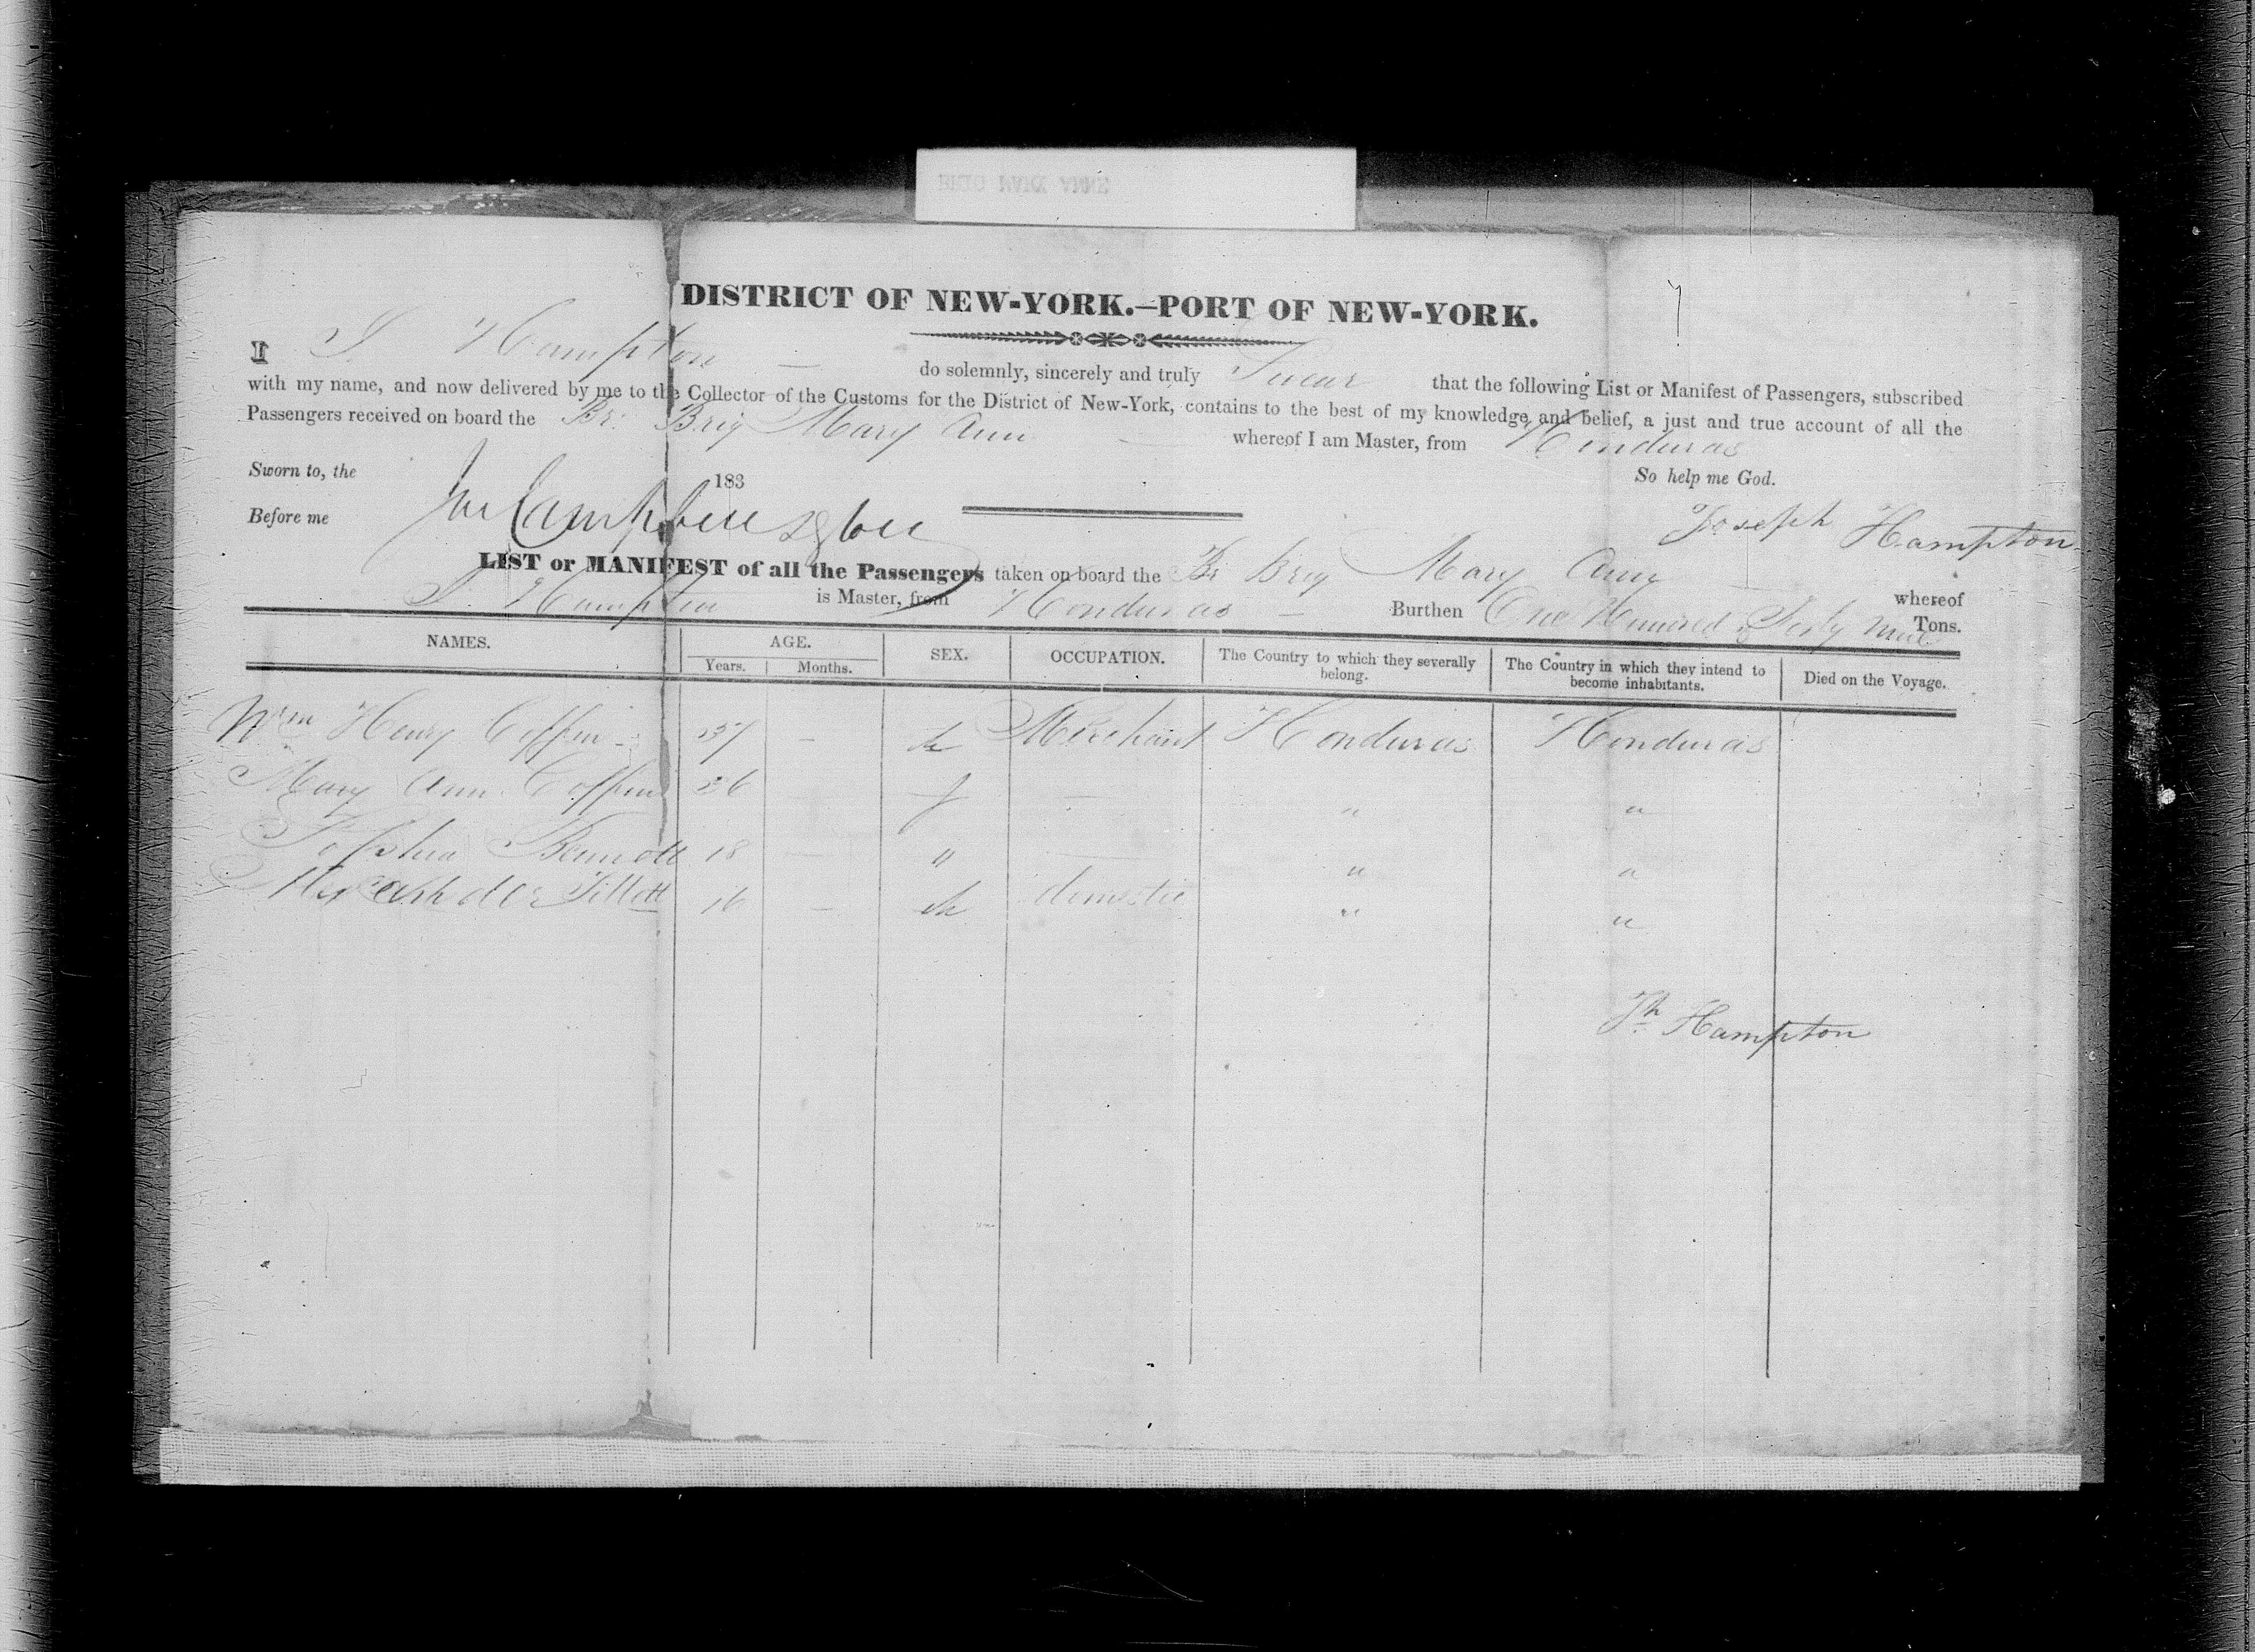 DISTRICT OF NEW-YORK.—PORT OF NEW-YORK.
I J Hampton — do solemnly, sincerely and truly Swear that the following List or Manifest of Passengers, subscribed
with my name, and now delivered by me to the Collector of the Customs for the District of New-York, contains to the best of my knowledge and belief, a just and true account of all the
Passengers received on board the Br. Brig Mary Ann — whereof I am Master, from Honduras
Sworn to, the 183 So help me God.
Before me Joseph Hampton
LIST or MANIFEST of all the Passengers taken on board the Br Brig Mary Ann whereof
J Hampton is Master, from Honduras — Burthen One Hundred & Tons.
NAMES. AGE. SEX. OCCUPATION. The Country to which they severally belong. The Country in which they intend to become inhabitants. Died on the Voyage.
Years. Months.
Wm Henry Coffin 37 — Merchant Honduras Honduras
Mary Ann Coffin 36 — f — " "
Bennett 18 — " — " "
Alexander Tillett 16 — domestic " "
Jh Hampton